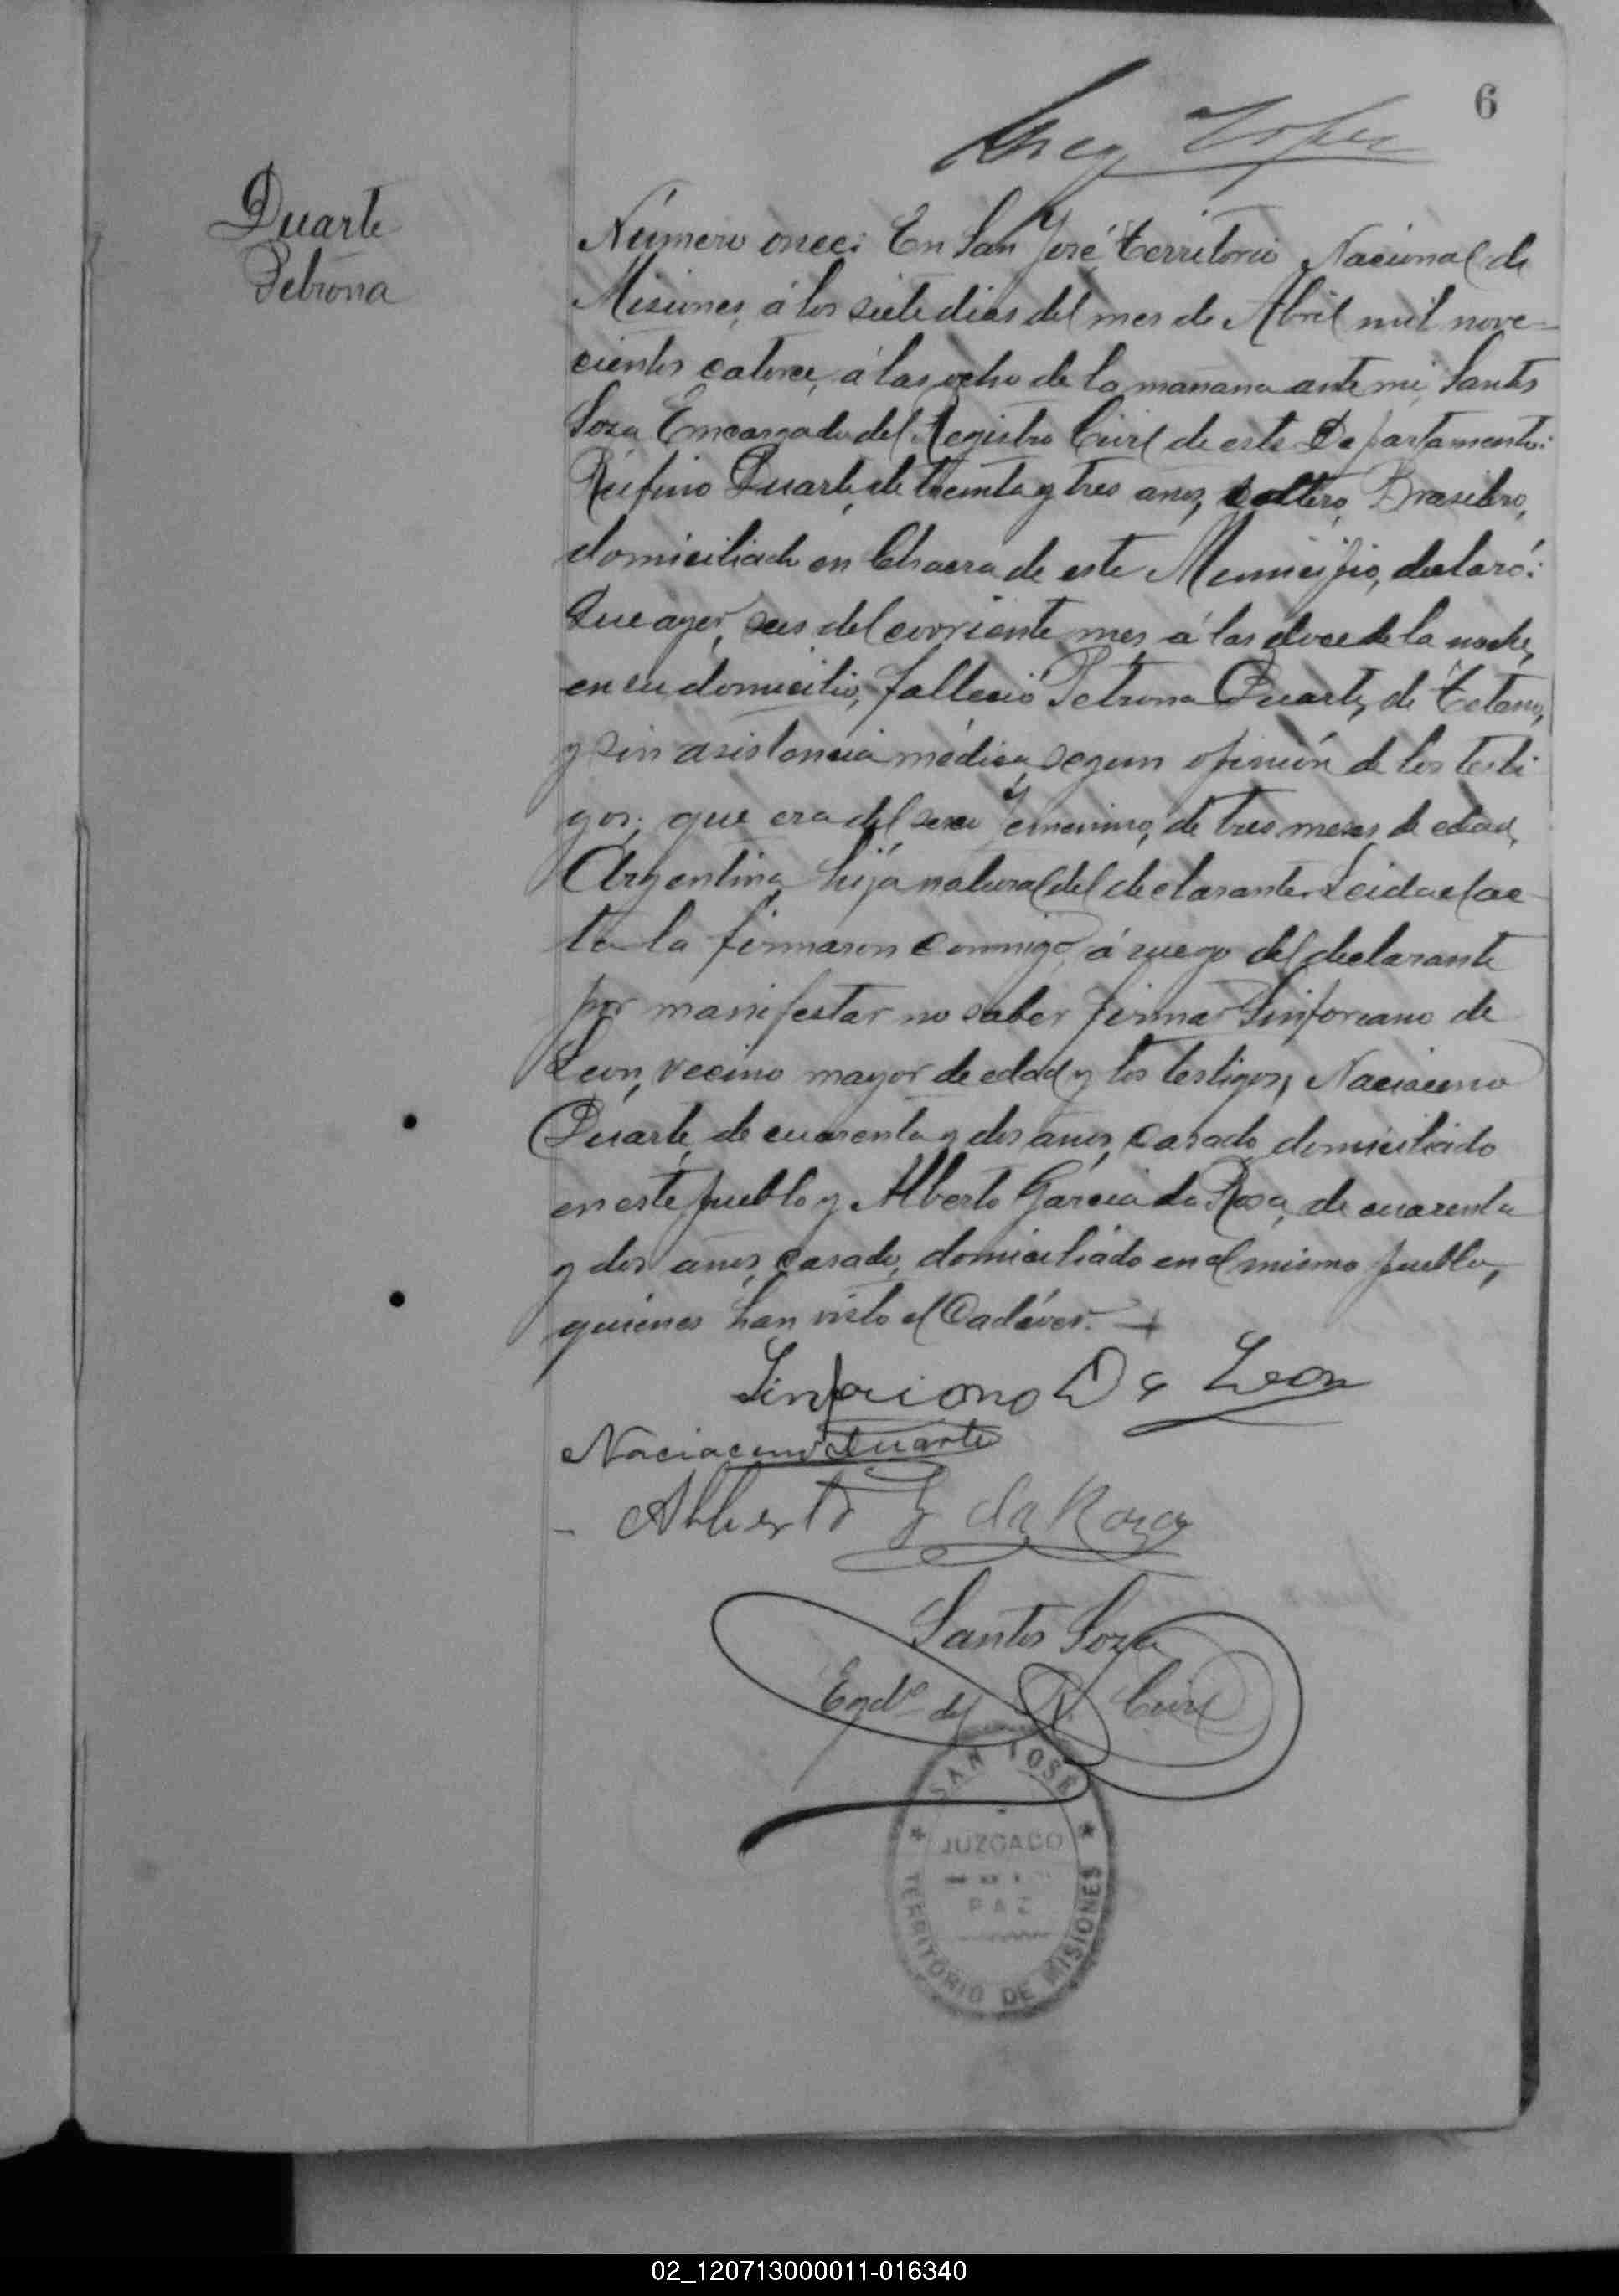 6
Duarte
Petrona
Número once: En San José territorio Nacional de
Misiones, á los siete dias del mes de Abril mil nove-
cientos catorce, á las ocho de la mañana ante mi, Santos
Soza Encargado del Registro Civil de este Departamento:
Rufino Duarte, de treinta y tres anos, soltero, Brasilero,
domiciliado en Chacra de este Municipio, declaró:
Que ayer, seis del corriente mes, á las doce de la noche,
en su domicilio, falleció Petrona Duarte, de tetano,
y sin asistencia médica, segun opinión de los testi
gos; que era del sexo femenino, de tres meses de edad,
Argentina, hija natural del declarante. Leida el ac-
ta la firmaron conmigo, á ruego del declarante
por manifestar no saber firmar Sinforiano de
Leon, vecino mayor de edad y los testigos, Naciaceno
Duarte, de cuarenta y dos años, casado, domiciliado
en este pueblo y Alberto Garcia da Rosa, de cuarenta
y dos años, casado, domiciliado en el mismo pueblo,
quienes han visto el Cadáver.
Sinforiono De Leon
Naciaceno Duarte
Alberto G da Rosa
Santos Soza
Engdo del R. Civil
SAN JOSÉ
JUZGADO
PAZ
TERRITORIO DE MISIONES
02_120713000011-016340